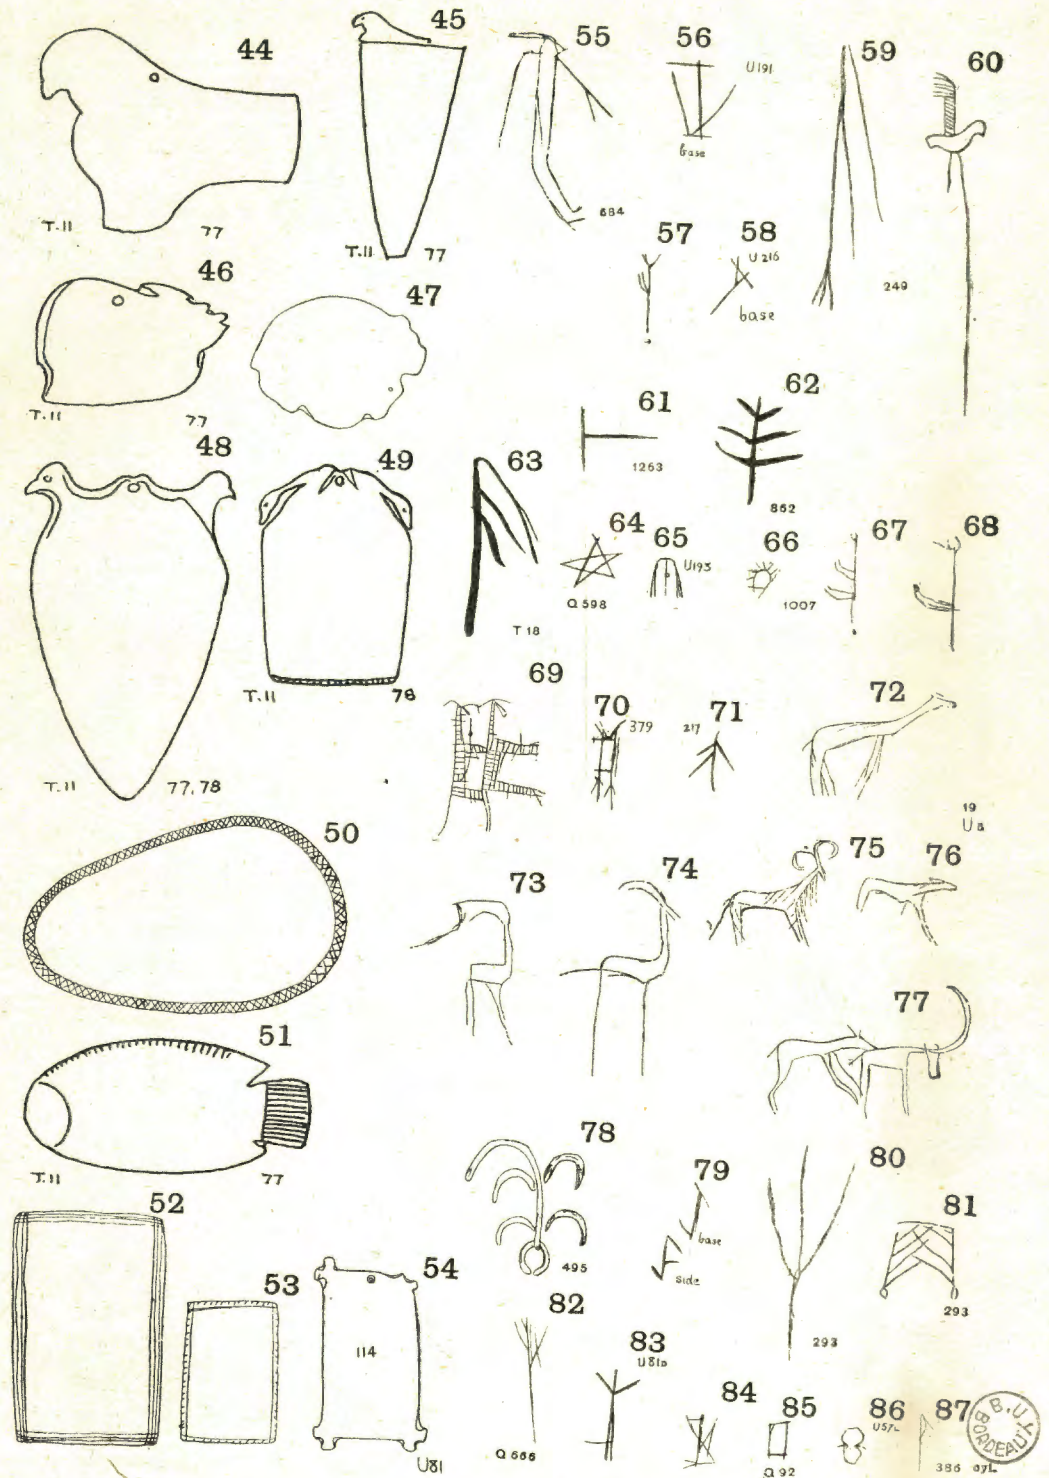 44
T.11 77
45
T.11 77
46
T.11 77
47
48
T.11 77, 78
49
T.11 78
50
51
T.11 77
52
53
54
114
U81
55
684
56
U191
base
57
58
U 216
base
59
249
60
61
1263
62
862
63
T 18
64
Q 598
65
U193
66
1007
67
68
69
70
379
71
217
72
19
U 8
73
74
75
76
77
78
495
79
base
side
80
293
81
293
82
Q 666
83
84
85
Q 92
86
87
386
B.U.
BORDEAUX